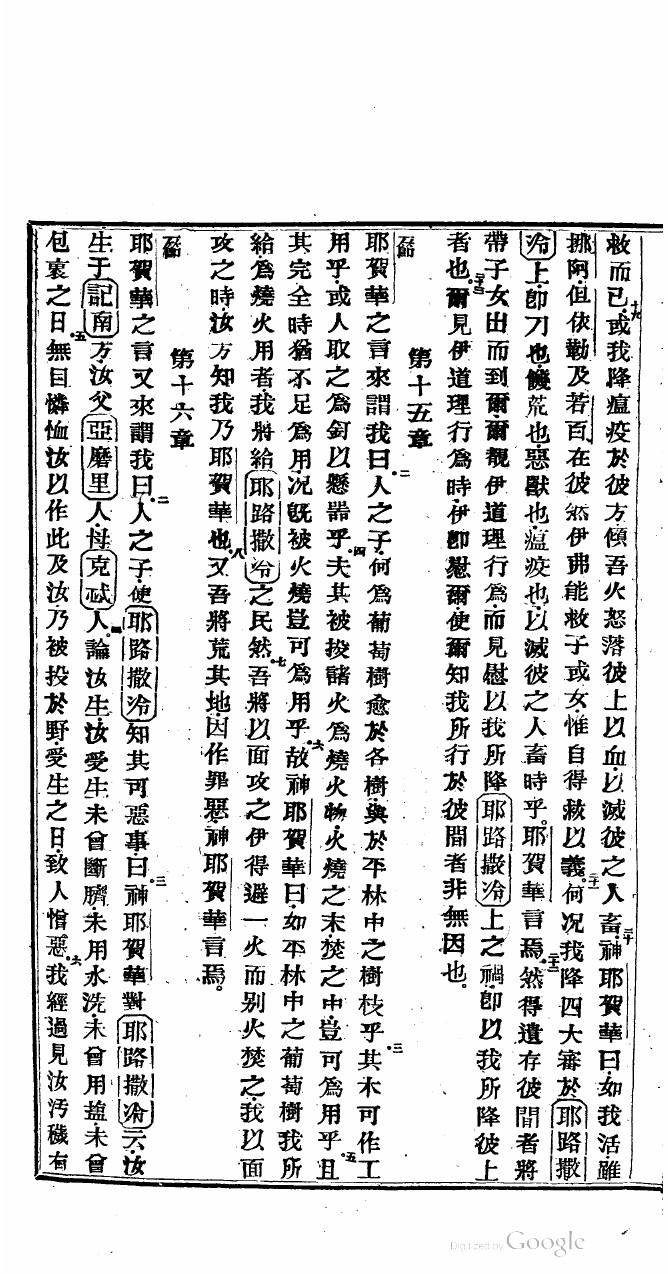 救而已十九或我降瘟疫於彼方傾吾火怒落彼上以血以滅彼之人畜二十神耶賀華曰如我活雖
挪阿但依勒及若百在彼然伊弗能救子或女惟自得救以義二十一何況我降四大審於耶路撒
冷上卽刀也饑荒也惡獸也瘟疫也以滅彼之人畜時乎耶賀華言焉二十二然得遺存彼間者將
帶子女出而到爾爾覩伊道理行爲而見慰以我所降耶路撒冷上之禍卽以我所降彼上
者也二十三爾見伊道理行爲時伊卽慰爾使爾知我所行於彼間者非無因也
第十五章
耶賀華之言來謂我曰二人之子何爲葡萄樹愈於各樹與於平林中之樹枝乎三其木可作工
用乎或人取之爲釘以懸器乎四夫其被投諸火爲燒火物火燒之末焚之中豈可爲用乎且五
其完全時猶不足爲用況旣被火燒豈可爲用乎六故神耶賀華曰如平林中之葡萄樹我所
給爲燒火用者我將給耶路撒冷之民然七吾將以面攻之伊得避一火而別火焚之我以面
攻之時汝方知我乃耶賀華也八又吾將荒其地因作罪惡神耶賀華言焉
第十六章
耶賀華之言又來謂我曰二人之子使耶路撒冷知其可惡事曰三神耶賀華對耶路撒冷云汝
生于記南方汝父亞磨里人母克忒人四論汝生汝受生未曾斷臍未用水洗未曾用鹽未曾
包裹之日五無目憐恤汝以作此及汝乃被投於野受生之日致人憎惡六我經過見汝汚穢有
Digitized by Google